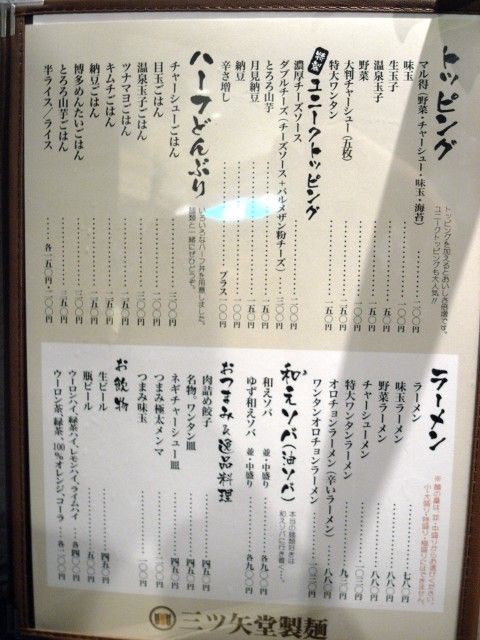 トッピング
トッピングを加えるとおいしさ倍増です。
ユニークトッピングも大人気!!
マル得（野菜・チャーシュー・味玉・海苔）
味玉 一〇〇円
生玉子
温泉玉子 一〇〇円
野菜 一〇〇円
大判チャーシュー（五枚）
特大ワンタン 一五〇円
特製 ユニークトッピング
濃厚チーズソース 二〇〇円
ダブルチーズ（チーズソース＋パルメザン粉チーズ） 三〇〇円
とろろ山芋 一五〇円
月見納豆 一五〇円
納豆 一〇〇円
辛さ増し プラス 一〇〇円
ハーフどんぶり
いろいろなハーフ丼を用意しました。
麺類と一緒にぜひどうぞ。
チャーシューごはん 二〇〇円
目玉ごはん
温泉玉子ごはん 二〇〇円
ツナマヨごはん
キムチごはん
納豆ごはん 一五〇円
博多めんたいごはん
とろろ山芋ごはん
半ライス／ライス 各一五〇円・二〇〇円
ラーメン
ラーメン 七八〇円
味玉ラーメン 八八〇円
野菜ラーメン 八八〇円
チャーシューメン
特大ワンタンラーメン
オロチョンラーメン（辛いラーメン） 八八〇円
ワンタンオロチョンラーメン
和えソバ（油ソバ）
本当の麺類好きは
和えソバに行き着く…。
和えソバ 並・中盛り 各九〇〇円
ゆず和えソバ 並・中盛り 各九〇〇円
おつまみ&逸品料理
肉詰め餃子 四五〇円
名物、ワンタン皿 四五〇円
ネギチャーシュー皿 四五〇円
つまみ極太メンマ 二〇〇円
つまみ味玉 一〇〇円
お飲物
生ビール 四五〇円
瓶ビール 五〇〇円
ウーロンハイ、緑茶ハイ、レモンハイ、ライムハイ 各四〇〇円
ウーロン茶、緑茶、100%オレンジ、コーラ 各二〇〇円
三ツ矢堂製麺